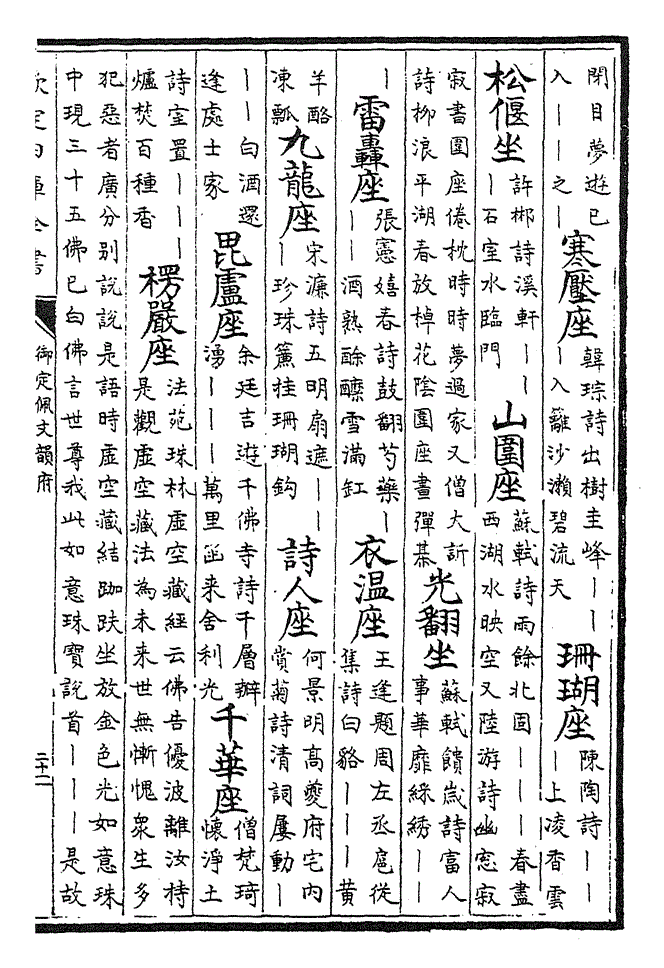 閉目夢遊已
入——之—
寒壓座
韓琮詩出樹圭峰——
—入籬沙瀬碧流天
珊瑚座
陳陶詩——
—上凌香雲
松偃坐
許郴詩溪軒——
—石室水臨門
山圍座
蘇軾詩雨餘北固———春盡
西湖水映空又陸游詩幽窓寂
寂書圍座倦枕時時夢過家又僧大訢
詩柳浪平湖春放棹花陰圍座晝彈棊
光翻坐
蘇軾饋嵗詩富人
事華靡綵綉——
—
雷轟座
張憲嬉春詩鼓翻芍藥—
——酒熟酴醾雪滿缸
衣温座
王逢題周左丞扈從
集詩白貉———黄
羊酪
凍瓢
九龍座
宋濂詩五明扇遮——
—珍珠簾挂珊瑚鈎
詩人座
何景明高夔府宅内
賞菊詩清詞屢動—
——白酒還
逢處士家
毘盧座
余廷吉遊千佛寺詩千層瓣
湧———萬里函来舍利光
千華座
僧梵琦
懷淨土
詩室置————
爐焚百種香
楞嚴座
法苑珠林虚空藏經云佛告優波離汝持
是觀虚空藏法為未来世無慚愧衆生多
犯惡者廣分别說說是語時虚空藏結跏趺坐放金色光如意珠
中現三十五佛已白佛言世尊我此如意珠寳說首———是故
欽定四庫全書
御定佩文韻府
二十二